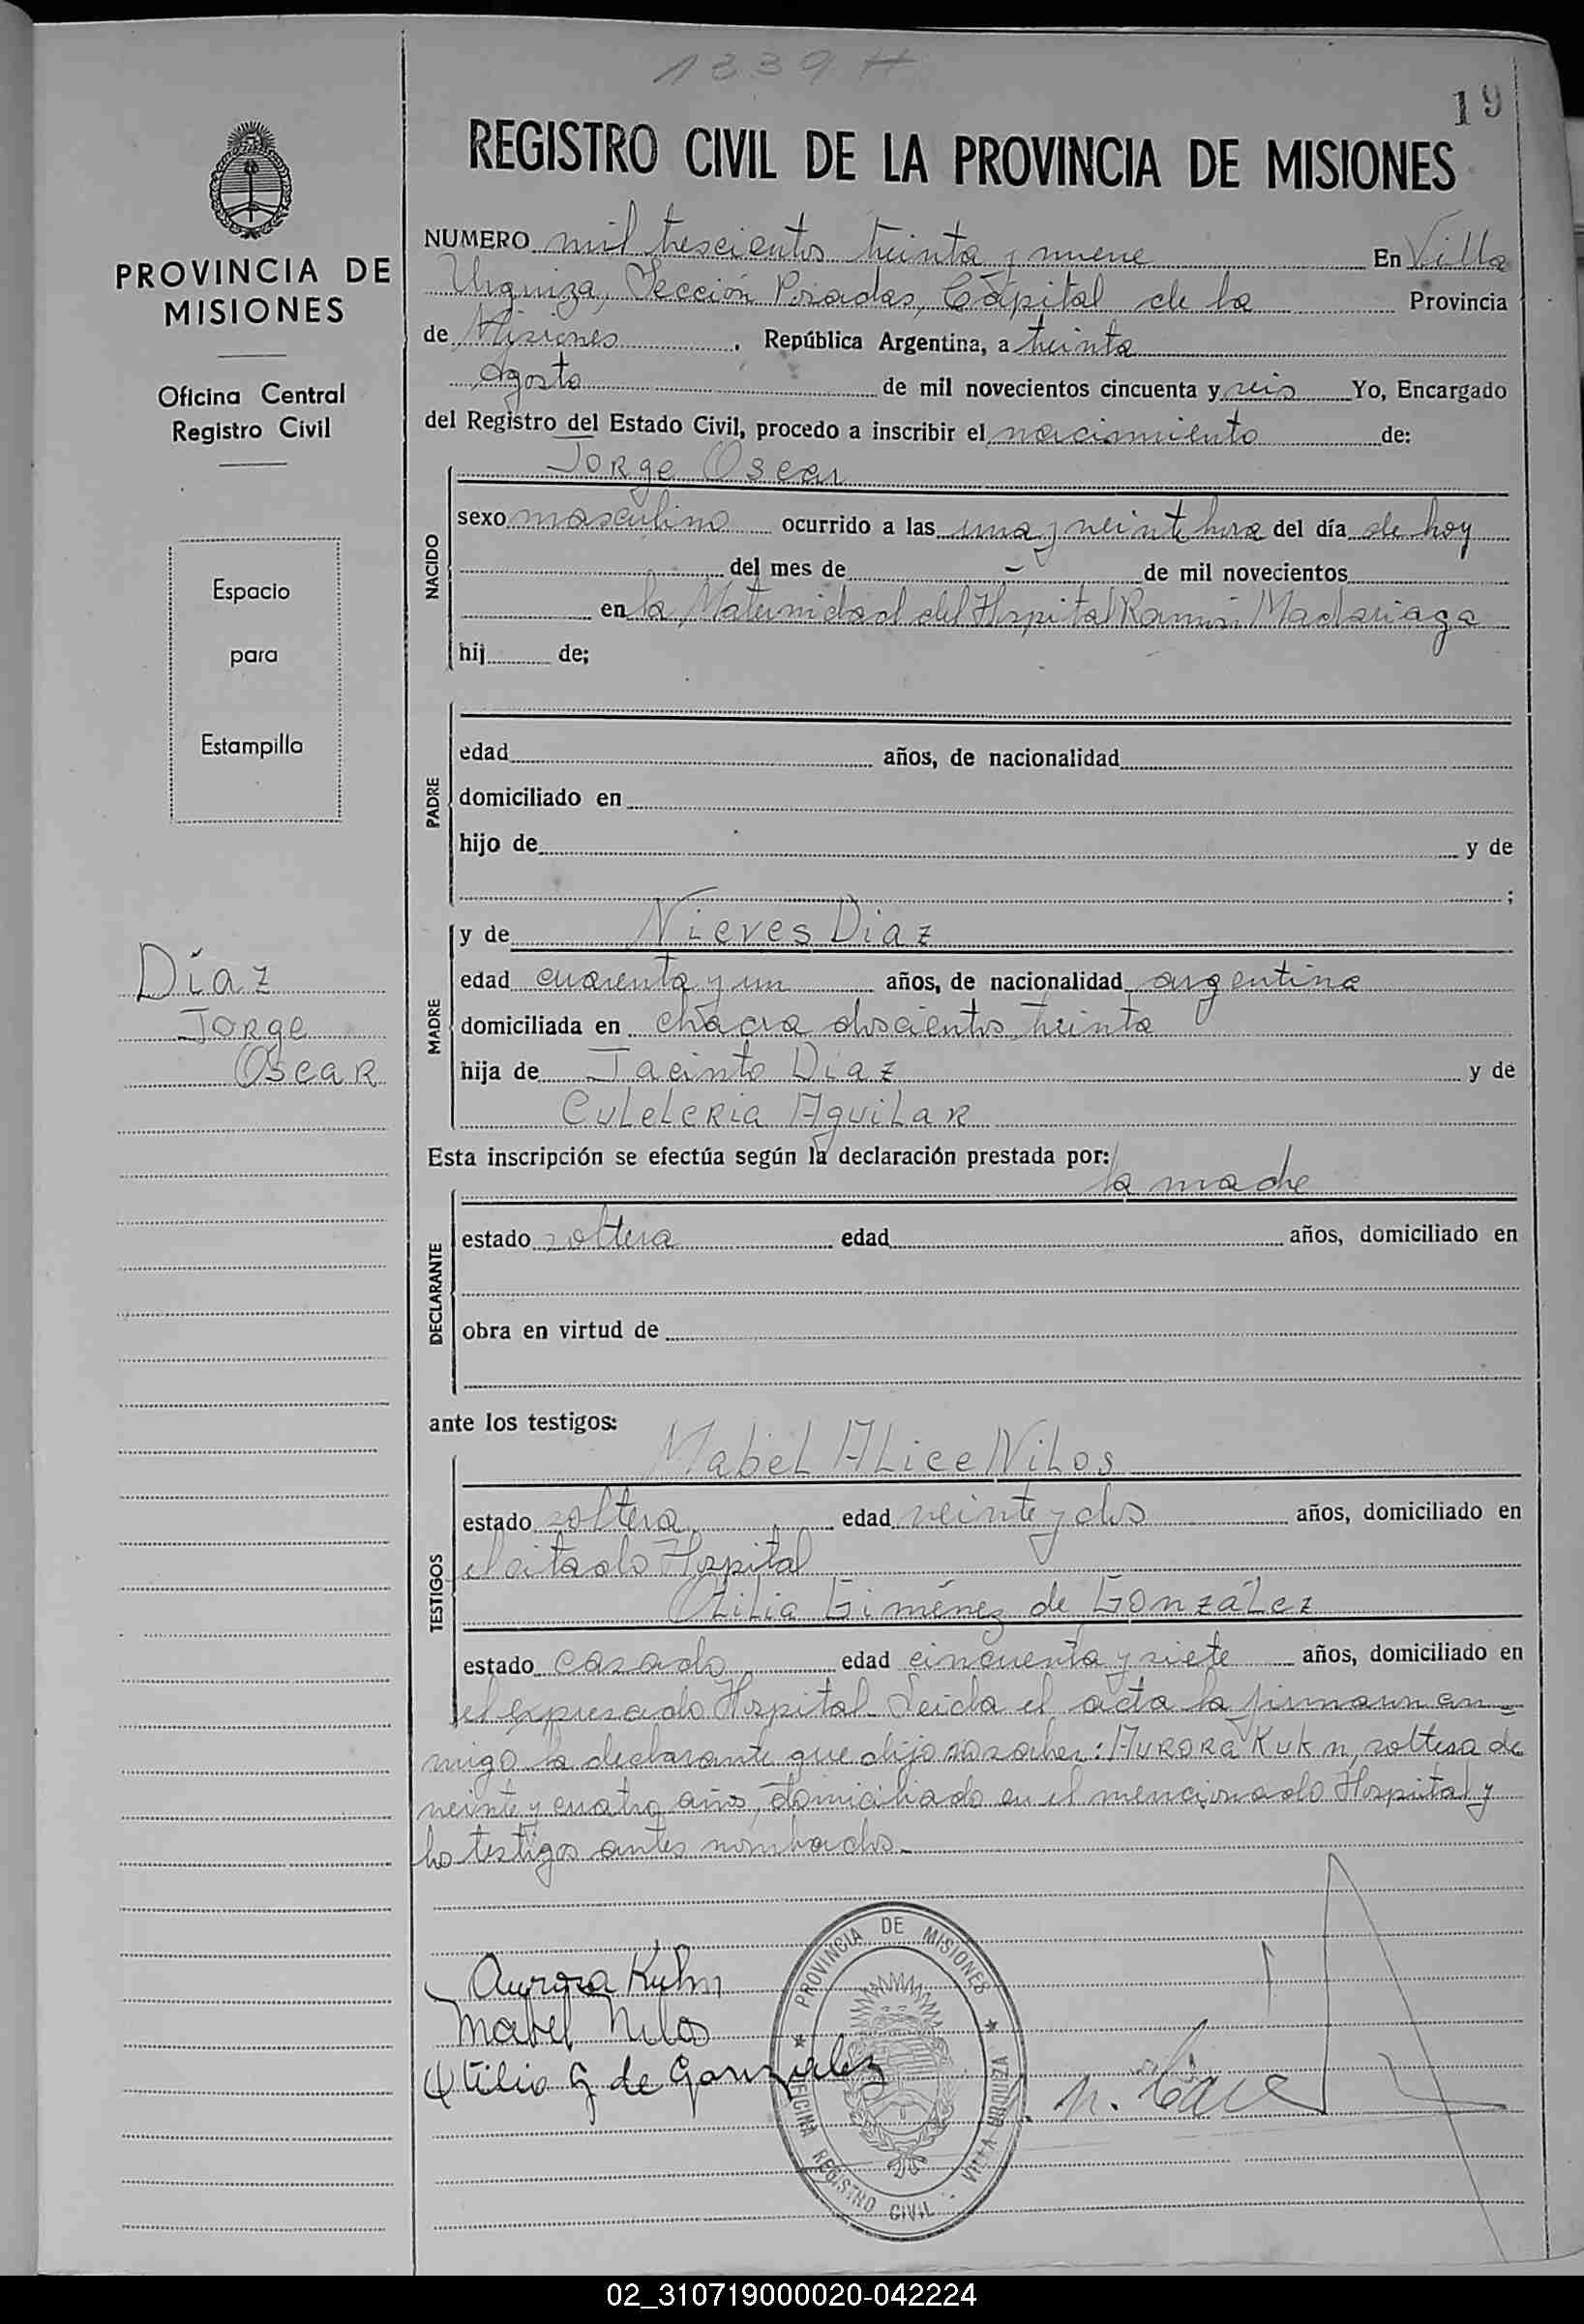 1339 H
19
REGISTRO CIVIL DE LA PROVINCIA DE MISIONES
PROVINCIA DE
MISIONES
Oficina Central
Registro Civil
Espacio
para
Estampilla
Díaz
Jorge
Oscar
NUMERO mil trescientos treinta y nueve En Villa
Urquiza, Sección Posadas, Capital de la Provincia
de Misiones. República Argentina, a treinta
Agosto de mil novecientos cincuenta y seis Yo, Encargado
del Registro del Estado Civil, procedo a inscribir el nacimiento de:
Jorge Oscar
NACIDO
sexo masculino ocurrido a las una y veinte hora del día de hoy
del mes de - de mil novecientos
en la Maternidad del Hospital Ramón Madariaga
hij de;
PADRE
edad años, de nacionalidad
domiciliado en
hijo de y de
;
MADRE
y de Nieves Diaz
edad cuarenta y un años, de nacionalidad argentina
domiciliada en chacra doscientos treinta
hija de Jacinto Diaz y de
Aguilar
Esta inscripción se efectúa según la declaración prestada por:
la madre
DECLARANTE
estado soltera edad años, domiciliado en
obra en virtud de
ante los testigos:
Mabel Alice Nilos
TESTIGOS
estado soltera edad veinte y dos años, domiciliado en
el citado Hospital
Otilia Giménez de González
estado casado edad cincuenta y siete años, domiciliado en
el expresado Hospital. Leida el acta la firmaron con-
migo la declarante que dijo no saber: Aurora Kukn, soltera de
veinte y cuatro años, domiciliado en el mencionado Hospital y
lo testigos antes nombrados.-
Aurora Kuhn
Mabel Nilos
Otilia G de González
PROVINCIA DE MISIONES
OFICINA REGISTRO CIVIL
VILLA URQUIZA
02_310719000020-042224